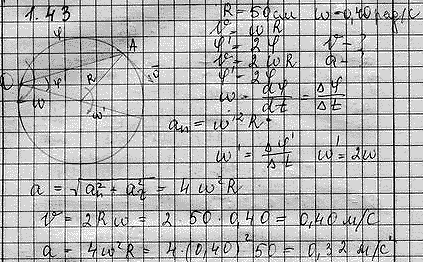 1.43
R = 50 см ω = 0,40 рад/с
v = ωR
φ' = 2φ v - ?
v = 2ωR a - ?
φ' = 2φ
ω = dφ/dt = Δφ/Δt
φ A
R v
O φ
ω ω'
aₙ = ω'²R
ω' = Δφ'/Δt ω' = 2ω
a = √(aₙ² + a²) = 4ω²R
v = 2Rω = 2 · 50 · 0,40 = 0,40 м/с
a = 4ω²R = 4 · (0,40)² 50 = 0,32 м/с